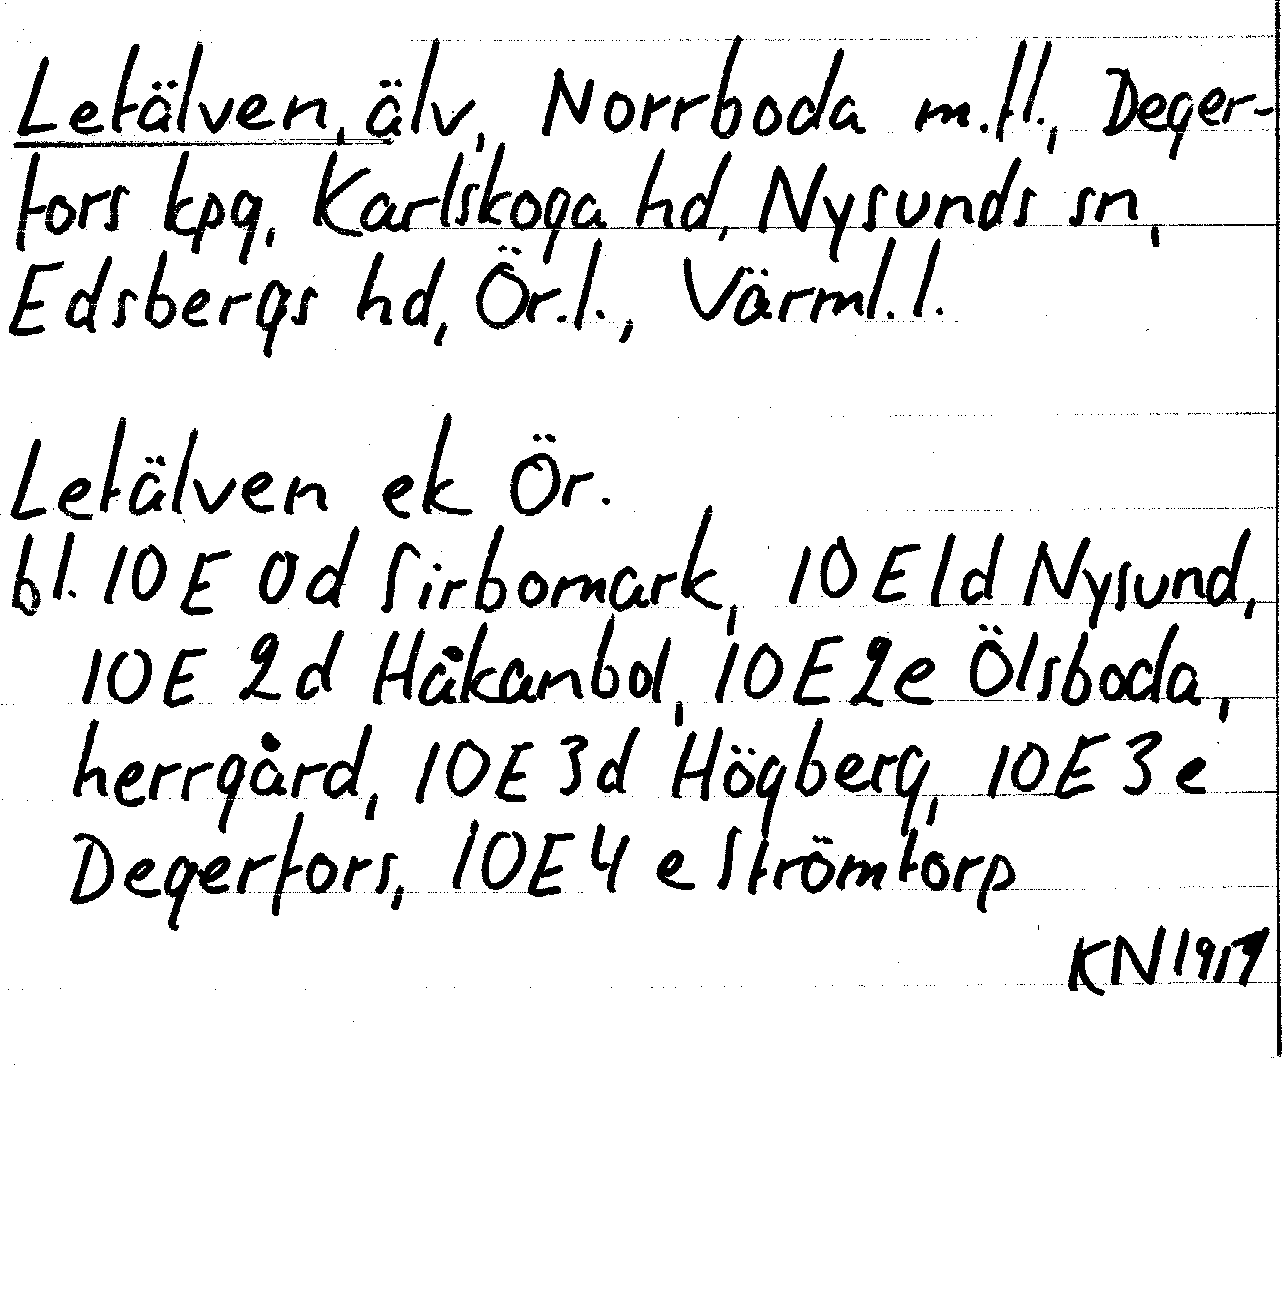 Letälven, älv, Norrboda m.fl., Deger-
fors kpg, Karlskoga hd, Nysunds sn,
Edsbergs hd, Ör.l., Värml.l.
Letälven ek Ör.
bl. 10E 0d Sirbomark, 10E1d Nysund,
10E 2d Håkanbol, 10E2e Ölsboda,
herrgård, 10E3d Högberg, 10E3e
Degerfors, 10E4e Strömtorp
KN